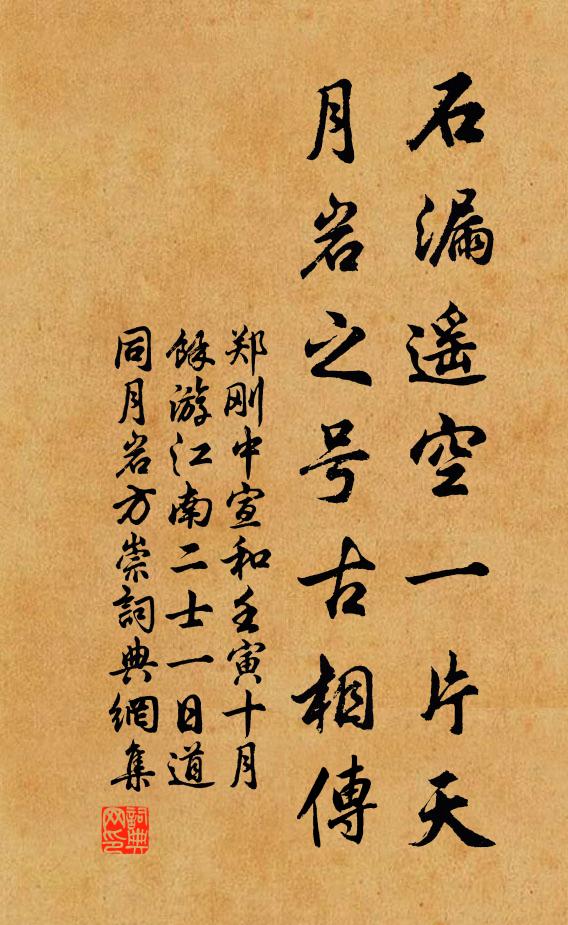 石漏遥空一片天
月岩之号古相傳
郑刚中宣和壬寅十月
餘游江南二士一日道
同月岩方崇詞典網集
詞典網印